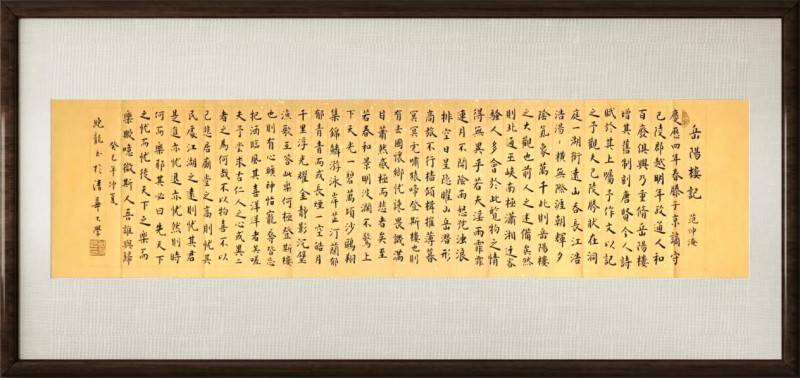 岳陽樓記 范仲淹
慶歷四年春滕子京謫守
巴陵郡越明年政通人和
百廢俱興乃重脩岳陽樓
增其舊制刻唐賢今人詩
賦於其上囑予作文以記
之予觀夫巴陵勝狀在洞
庭一湖銜遠山吞長江浩
浩橫無際涯朝輝夕
陰氣象萬千此則岳陽樓
之大觀也前人之述備矣然
則北通巫峽南極瀟湘遷客
騷人多會於此覽物之情
得無異乎若夫淫雨霏霏
連月不開陰風怒號濁浪
排空日星隱曜山岳潛形
商旅不行檣傾楫摧薄暮
冥冥虎嘯猿啼登斯樓也則
有去國懷鄉憂讒畏譏滿
目蕭然感極而悲者矣至
若春和景明波瀾不驚上
下天光一碧萬頃沙鷗翔
集錦鱗游泳岸芷汀蘭郁
郁青青而或長煙一空皓月
千里浮光耀金靜影沉璧
漁歌互答此樂何極登斯樓
也則有心曠神怡寵辱皆忘
把酒臨風其喜洋洋者矣嗟
夫予嘗求古仁人之心或異二
者之為何哉不以物喜不以
己悲居廟堂之高則憂其
民處江湖之遠則憂其君
是進亦憂退亦憂然則時
何而樂耶其必曰先天下
之憂而憂後天下之樂而
樂歟噫微斯人吾誰與歸
癸巳年仲夏
曉龍書於清華大學